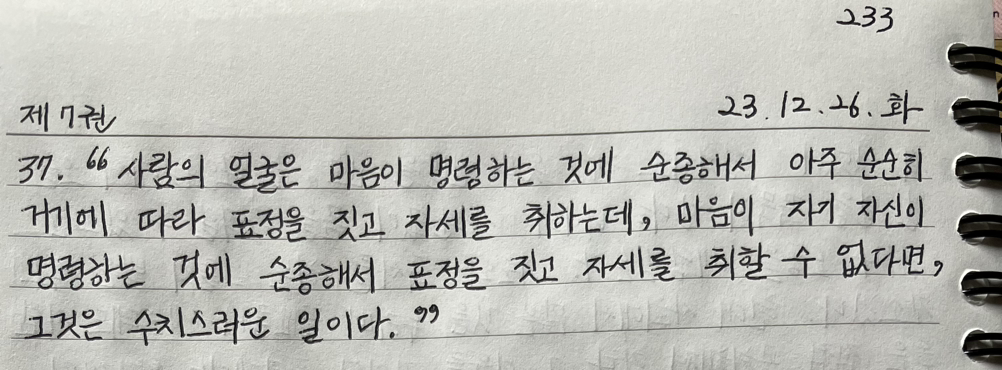 233
제 7권 23.12.26.화
37. “사람의 얼굴은 마음이 명령하는 것에 순종해서 아주 순순히
거기에 따라 표정을 짓고 자세를 취하는데, 마음이 자기 자신이
명령하는 것에 순종해서 표정을 짓고 자세를 취할 수 없다면,
그것은 수치스러운 일이다.”